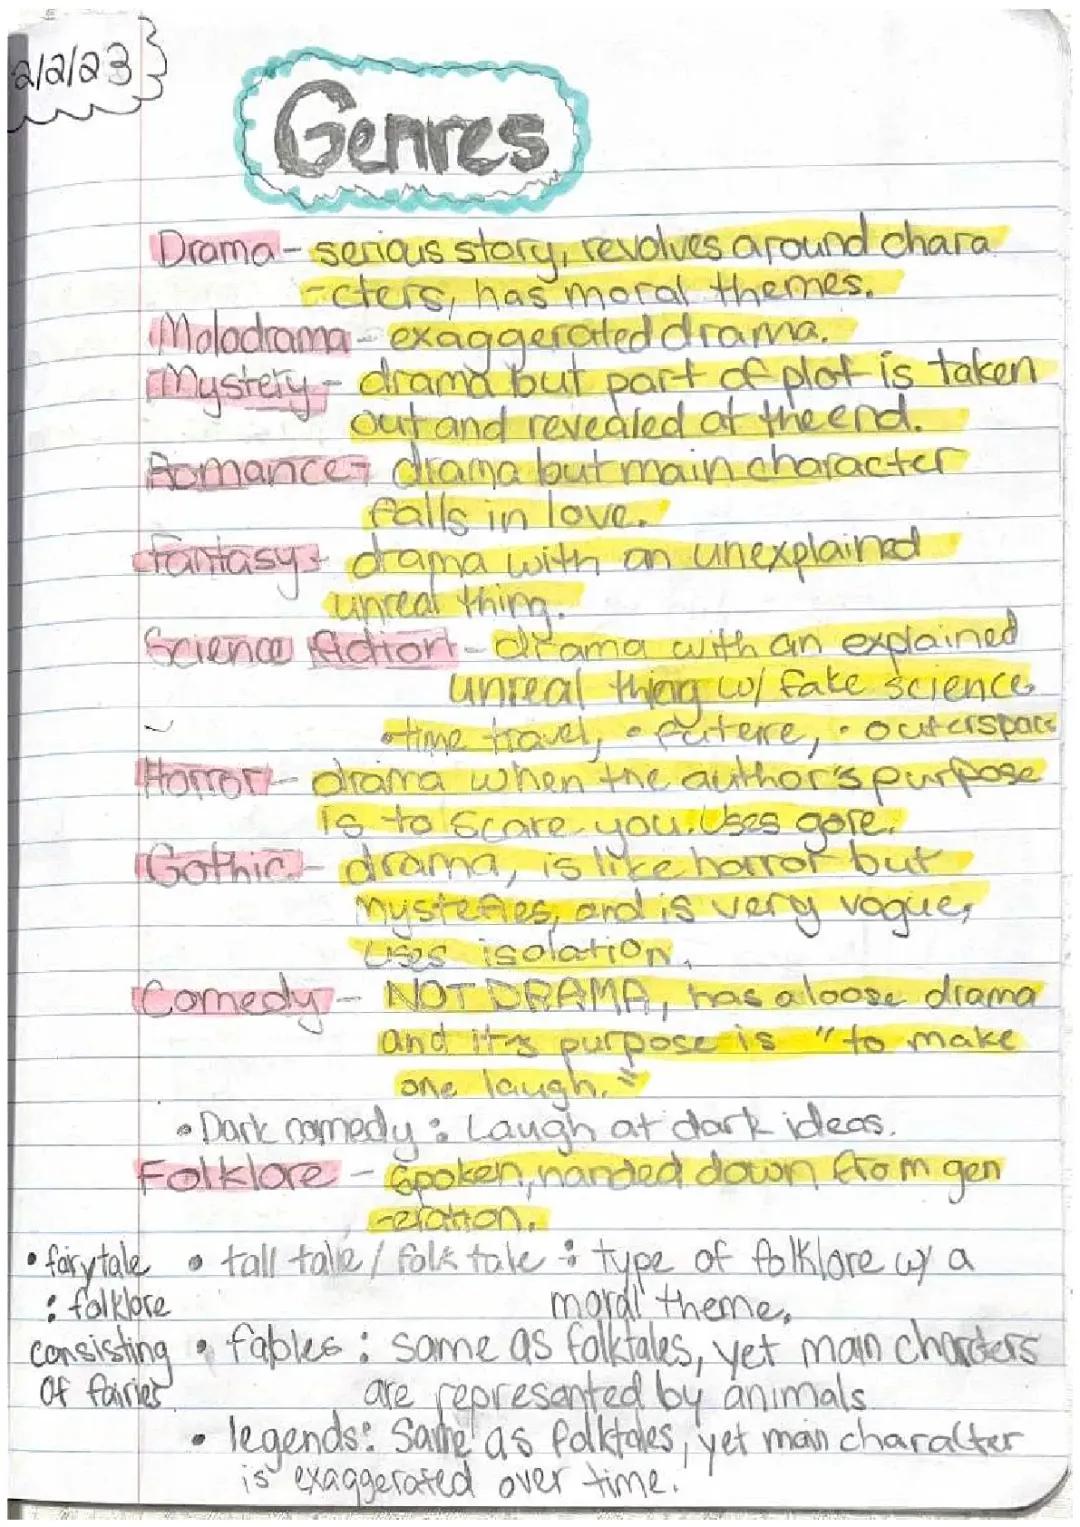 2/2/23
Genres
Drama - serious story, revolves around chara
-cters, has moral themes.
Molodrama - exaggerated drama.
Mystery - drama but part of plot is taken
out and revealed at the end.
Romance - drama but main character
falls in love.
Fantasy - drama with an unexplained
unreal thing.
Science fiction - drama with an explained
unreal thing w/ fake science
• time travel, • future, • outerspace
Horror - drama when the author's purpose
is to scare you. Uses gore.
Gothic - drama, is like horror but
mysteries, and is very vague,
uses isolation.
Comedy - NOT DRAMA, has a loose drama
and it's purpose is "to make
one laugh."
• Dark comedy: Laugh at dark ideas.
Folklore - Spoken, handed down from gen
-eration.
• fairytale
: folklore
consisting
of fairies
• tall tale / folk tale: type of folklore w/ a
moral theme.
• fables: same as folktales, yet main charcters
are represented by animals
• legends: Same as folktales, yet main character
is exaggerated over time.